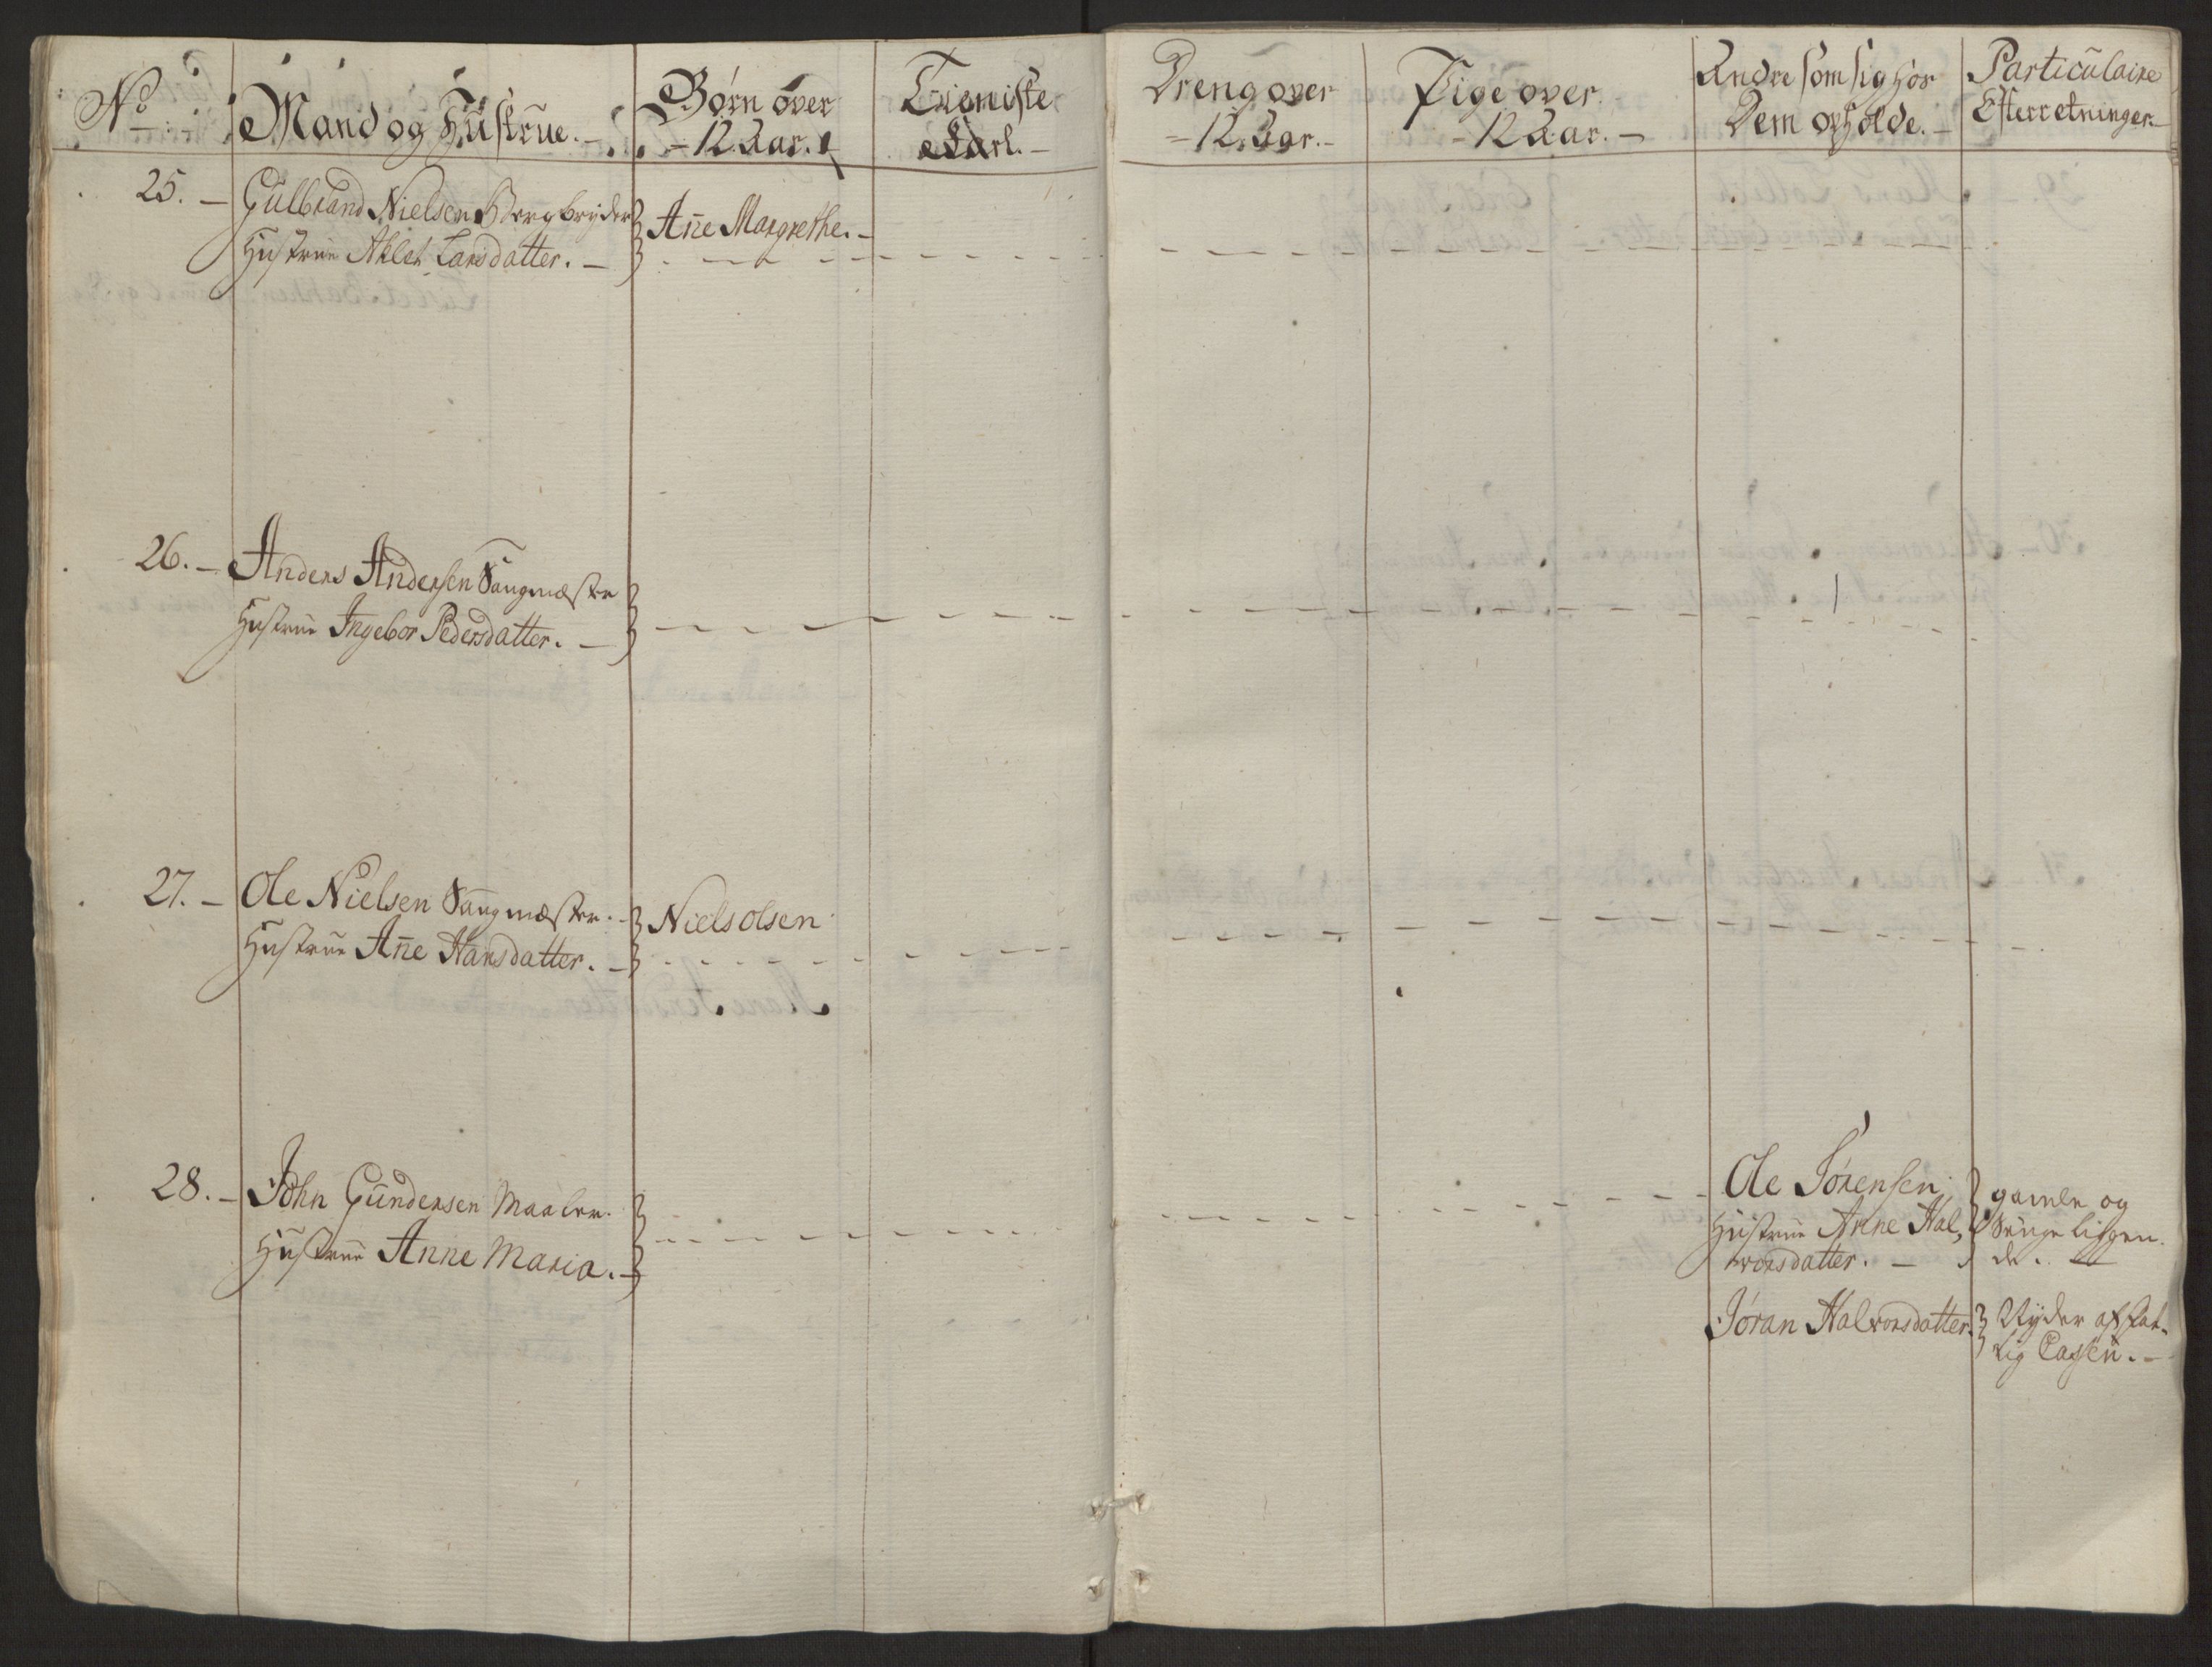 No
Mand og Hustrue.
Børn over
12. Aar.
Tieniste
Karl.
Dreng over
12. Aar.
Pige over
12 Aar.
Andre som sig hos
Dem opholde.
Particulaire
Efterretninger
25. Gulbrand Nielsen Bergbryder
Hustrue Ahlet Larsdatter.
Ane Margrethe.
26. Anders Andersen Saugmæster
Hustrue Ingebor Pedersdatter.
27. Ole Nielsen Saugmæster.
Hustrue Ane Hansdatter.
Niels Olsen
28. John Gundersen Maaler.
Hustrue Anne Maria.
Ole Sørensen
Hustrue Anne Hal,
worsdatter.
gamle og
Senge liggen
de.
Jøran Halvorsdatter
Nyder af Fat-
tig Cassen.